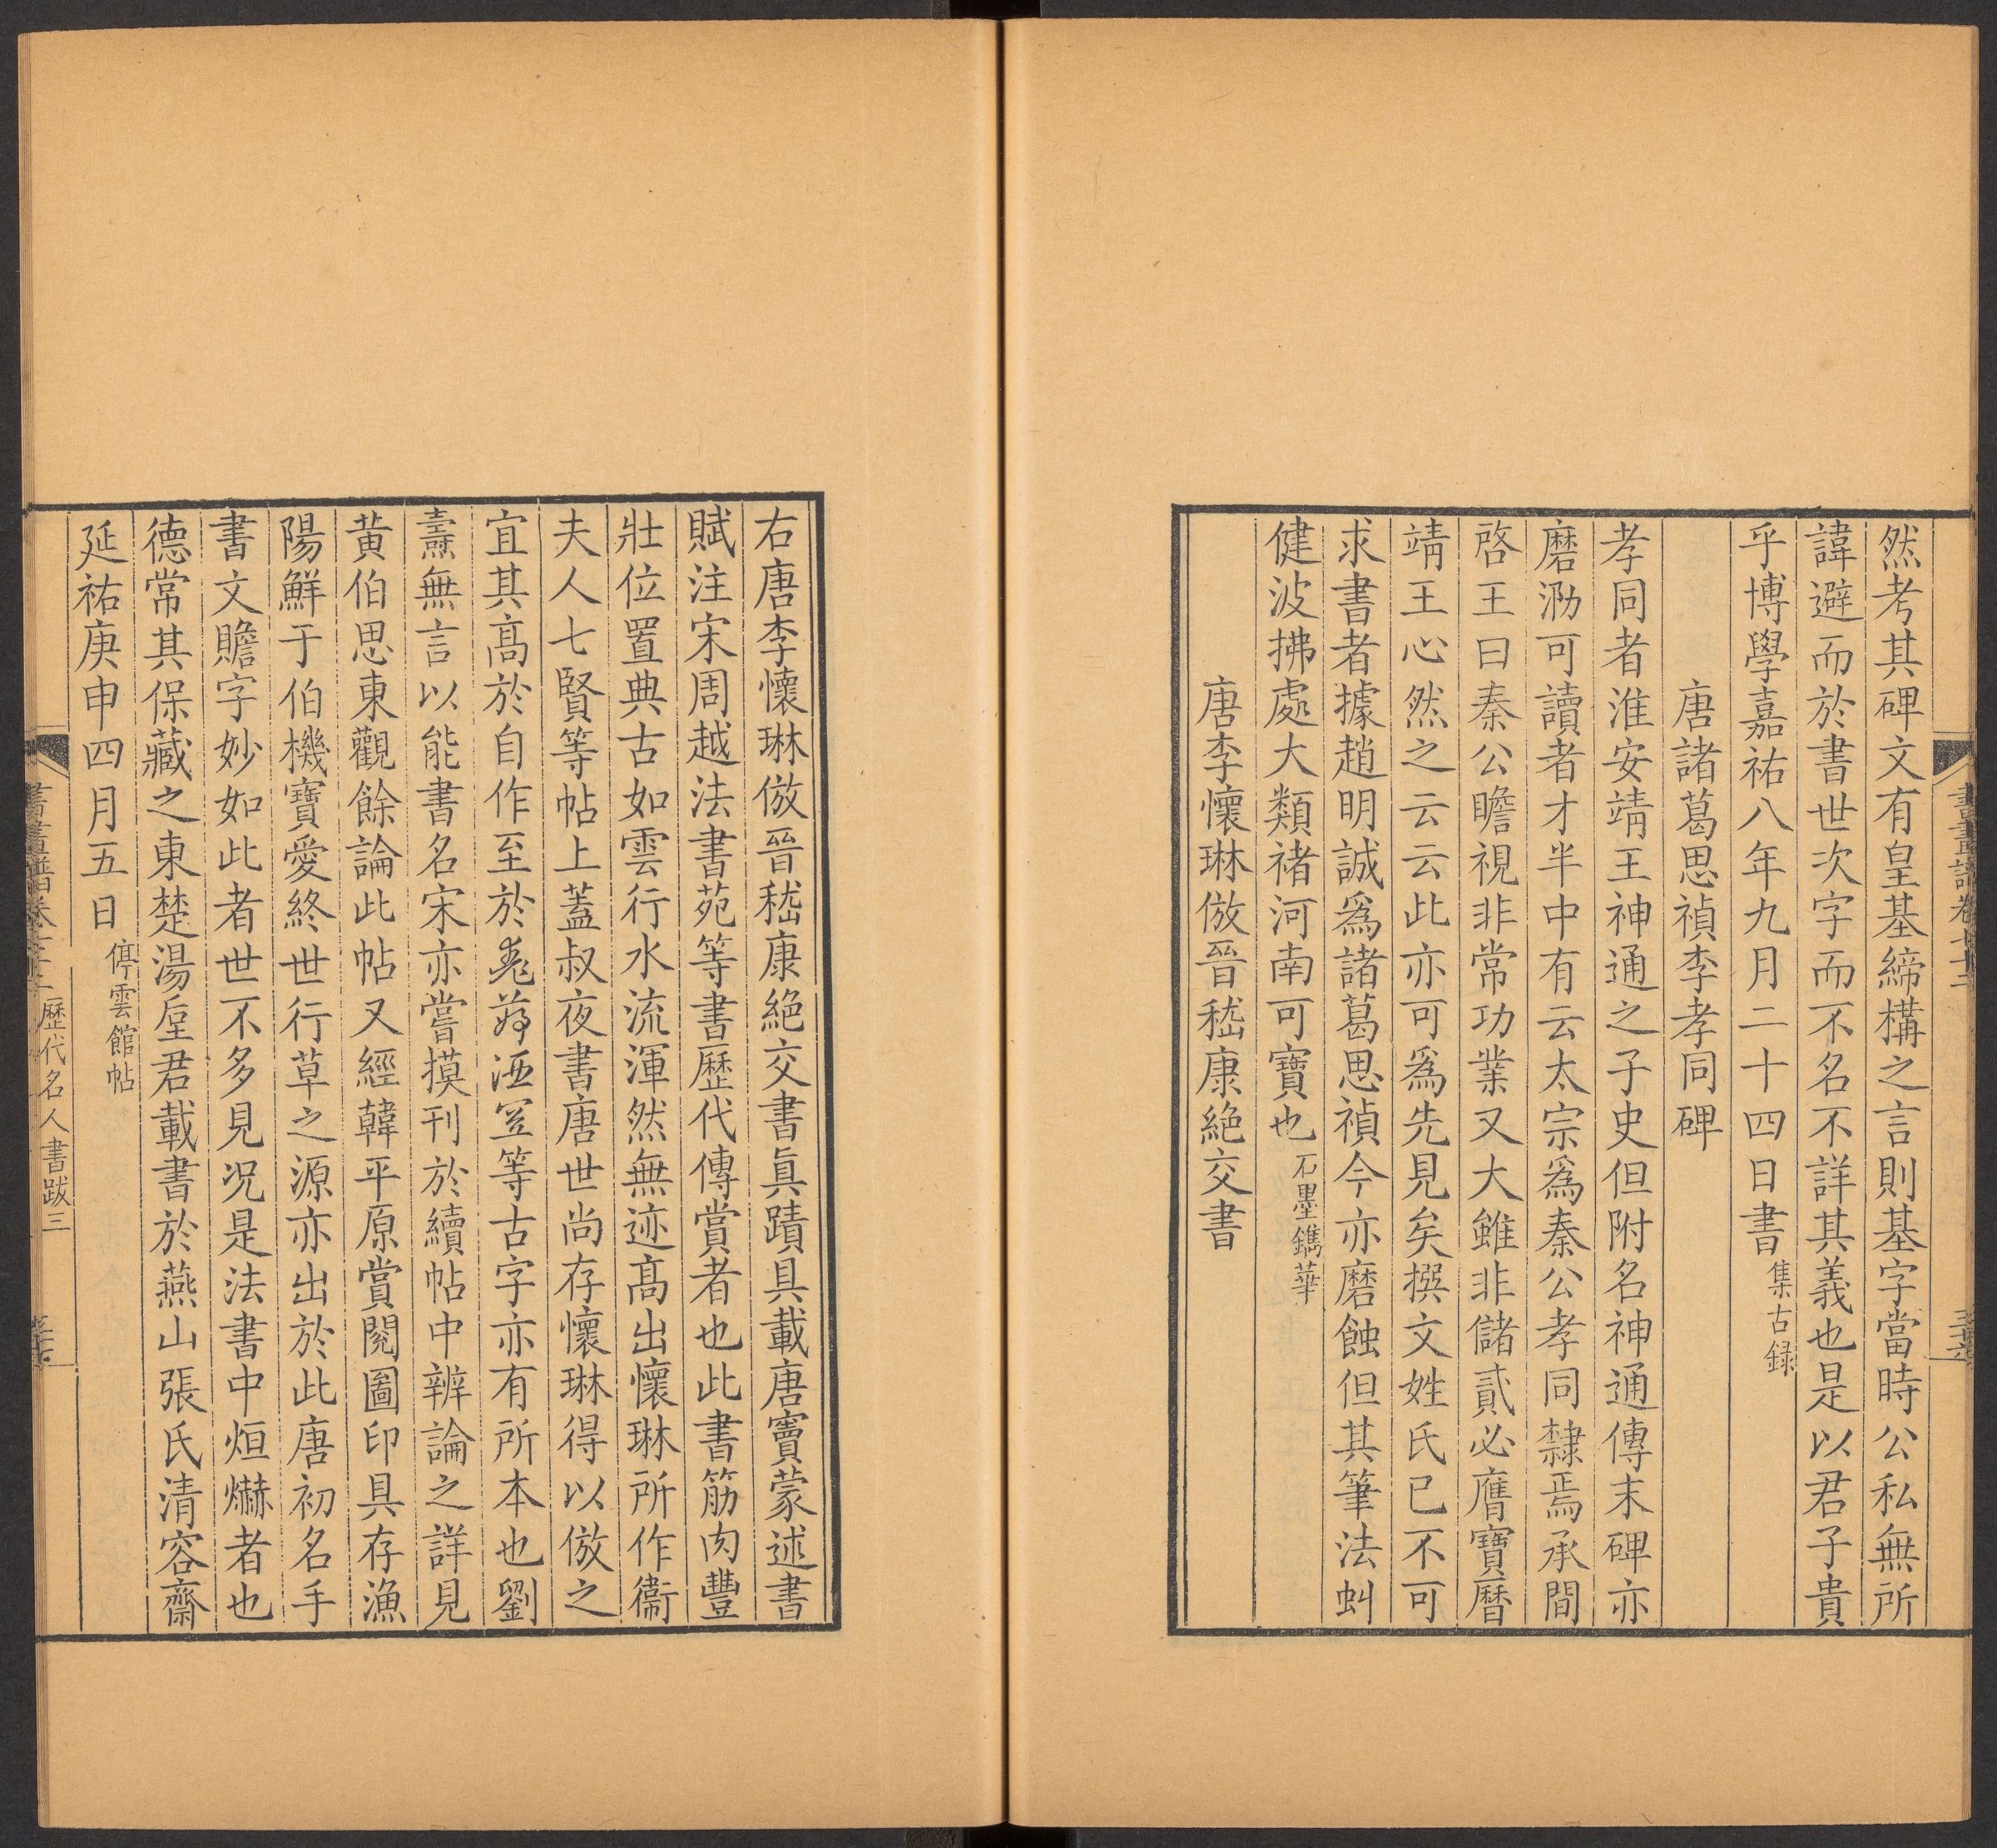 然考其碑文有皇基締構之言則基字當時公私無所
諱避而於書世次字而不名不詳其義也是以君子貴
乎博學嘉祐八年九月二十四日書集古録
唐諸葛思禎李孝同碑
孝同者淮安靖王神通之子史但附名神通傳末碑亦
磨泐可讀者才半中有云太宗爲秦公孝同隸焉承間
啓王曰秦公瞻視非常功業又大雖非儲貳必膺寶曆
靖王心然之云云此亦可爲先見矣撰文姓氏已不可
求書者據趙明誠爲諸葛思禎今亦磨蝕但其筆法虯
健波拂處大類褚河南可寶也石墨鐫華
唐李懷琳倣晉嵇康絶交書
右唐李懷琳倣晉嵇康絶交書眞蹟具載唐竇蒙述書
賦注宋周越法書苑等書歷代傳賞者也此書筋肉豐
壯位置典古如雲行水流渾然無迹髙出懷琳所作衞
夫人七賢等帖上蓋叔夜書唐世尚存懷琳得以倣之
宜其髙於自作至於等古字亦有所本也劉
燾無言以能書名宋亦嘗摸刊於續帖中辨論之詳見
黄伯思東觀餘論此帖又經韓平原賞閱圖印具存漁
陽鮮于伯機寶愛終世行草之源亦出於此唐初名手
書文贍字妙如此者世不多見况是法書中烜爀者也
德常其保藏之東楚湯垕君載書於燕山張氏清容齋
延祐庚申四月五日停雲館帖
歷代名人書跋三